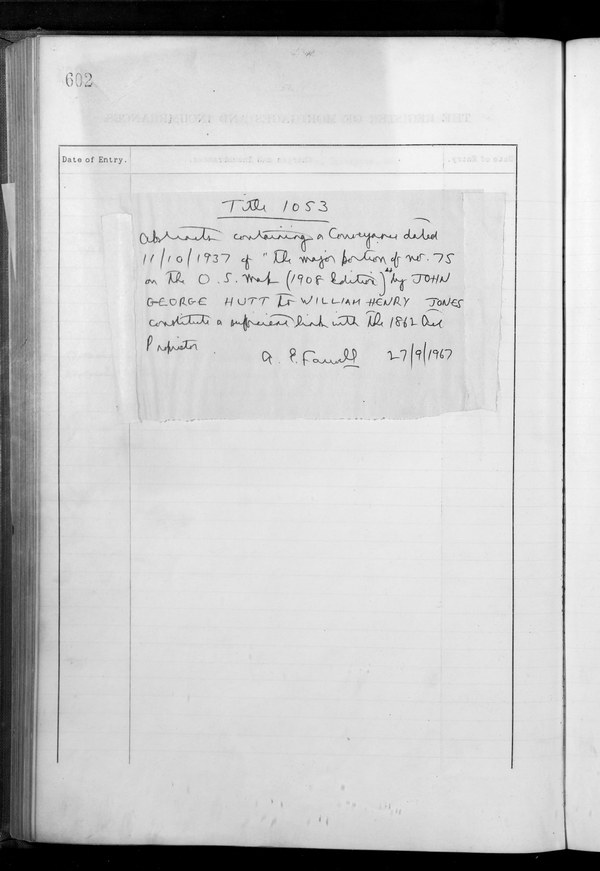 602
Date of Entry.
Title 1053
Abstracts containing a Conveyance dated
11/10/1937 of "the major portion of no. 75
on the O.S. Map (1908 Edition)" by JOHN
GEORGE HUTT to WILLIAM HENRY JONES
constitute a sufficient link with the 1862 Act
Proprietor.
A. E. Farrell 27/9/1967